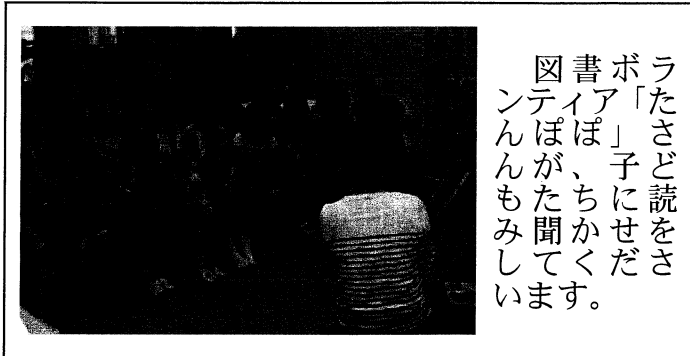 図書ボラ
ンティア「た
んぽぽ」さ
んが、子ど
もたちに読
み聞かせを
してくださ
います。